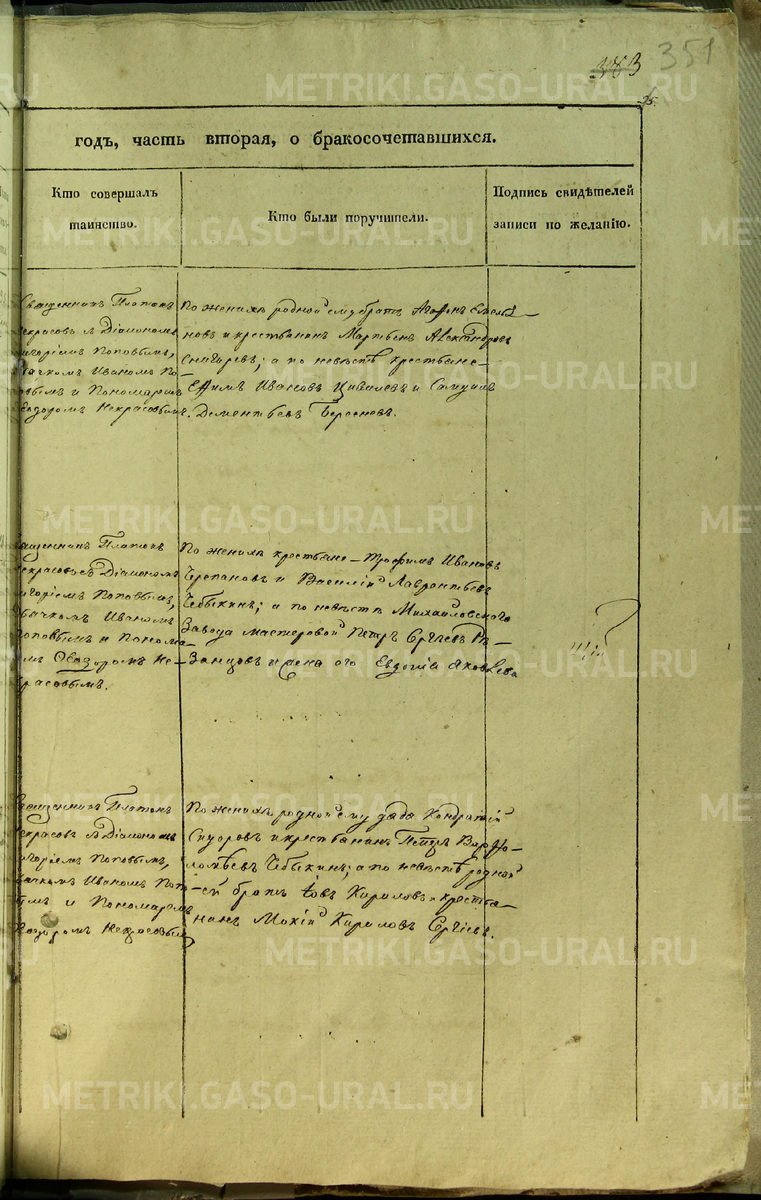 383 351
годъ, часть вторая, о бракосочетавшихся.
Кто совершалъ
таинство.
Кто были поручители.
Подпись свидѣтелей
записи по желанію.
Священникъ Платонъ
Некрасовъ съ Діакономъ
Григоріемъ Поповымъ,
Дьячкомъ Иваномъ По-
повымъ и Пономаремъ
Ѳеодоромъ Некрасовымъ.
По женихѣ родной ему братъ Агафонъ Емелья
новъ и крестьянинъ Мартынъ Александровъ
Снигиревъ; а по невѣстѣ крестьяне-
Ефимъ Ивановъ Цивилевъ и Самуилъ
Дементьевъ Береневъ.
Священникъ Платонъ
Некрасовъ съ Діакономъ
Григоріемъ Поповымъ,
Дьячкомъ Иваномъ
Поповымъ и Понома-
ремъ Ѳеодоромъ Не-
красовымъ.
По женихѣ крестьяне - Трофимъ Ивановъ
Черепановъ и Василій Лаврентьевъ
Чебыкинъ; а по невѣстѣ Михайловскаго
Завода мастеровой Петръ Сергіевъ Ря-
занцовъ и жена его Евдокія Яковлева
Священникъ Платонъ
Некрасовъ съ Діакономъ
Григоріемъ Поповымъ,
Дьячкомъ Иваномъ Попо-
вымъ и Пономаремъ
Ѳеодоромъ Некрасовымъ
По женихѣ родной ему дядя Кондратій
Сидоровъ и крестьянинъ Петръ Варѳо-
ломѣевъ Чебыкинъ; а по невѣстѣ родной
-ей братъ Іовъ Кириловъ и крестья-
нинъ Мокій Кириловъ Сергіевъ.
METRIKI.GASO-URAL.RU